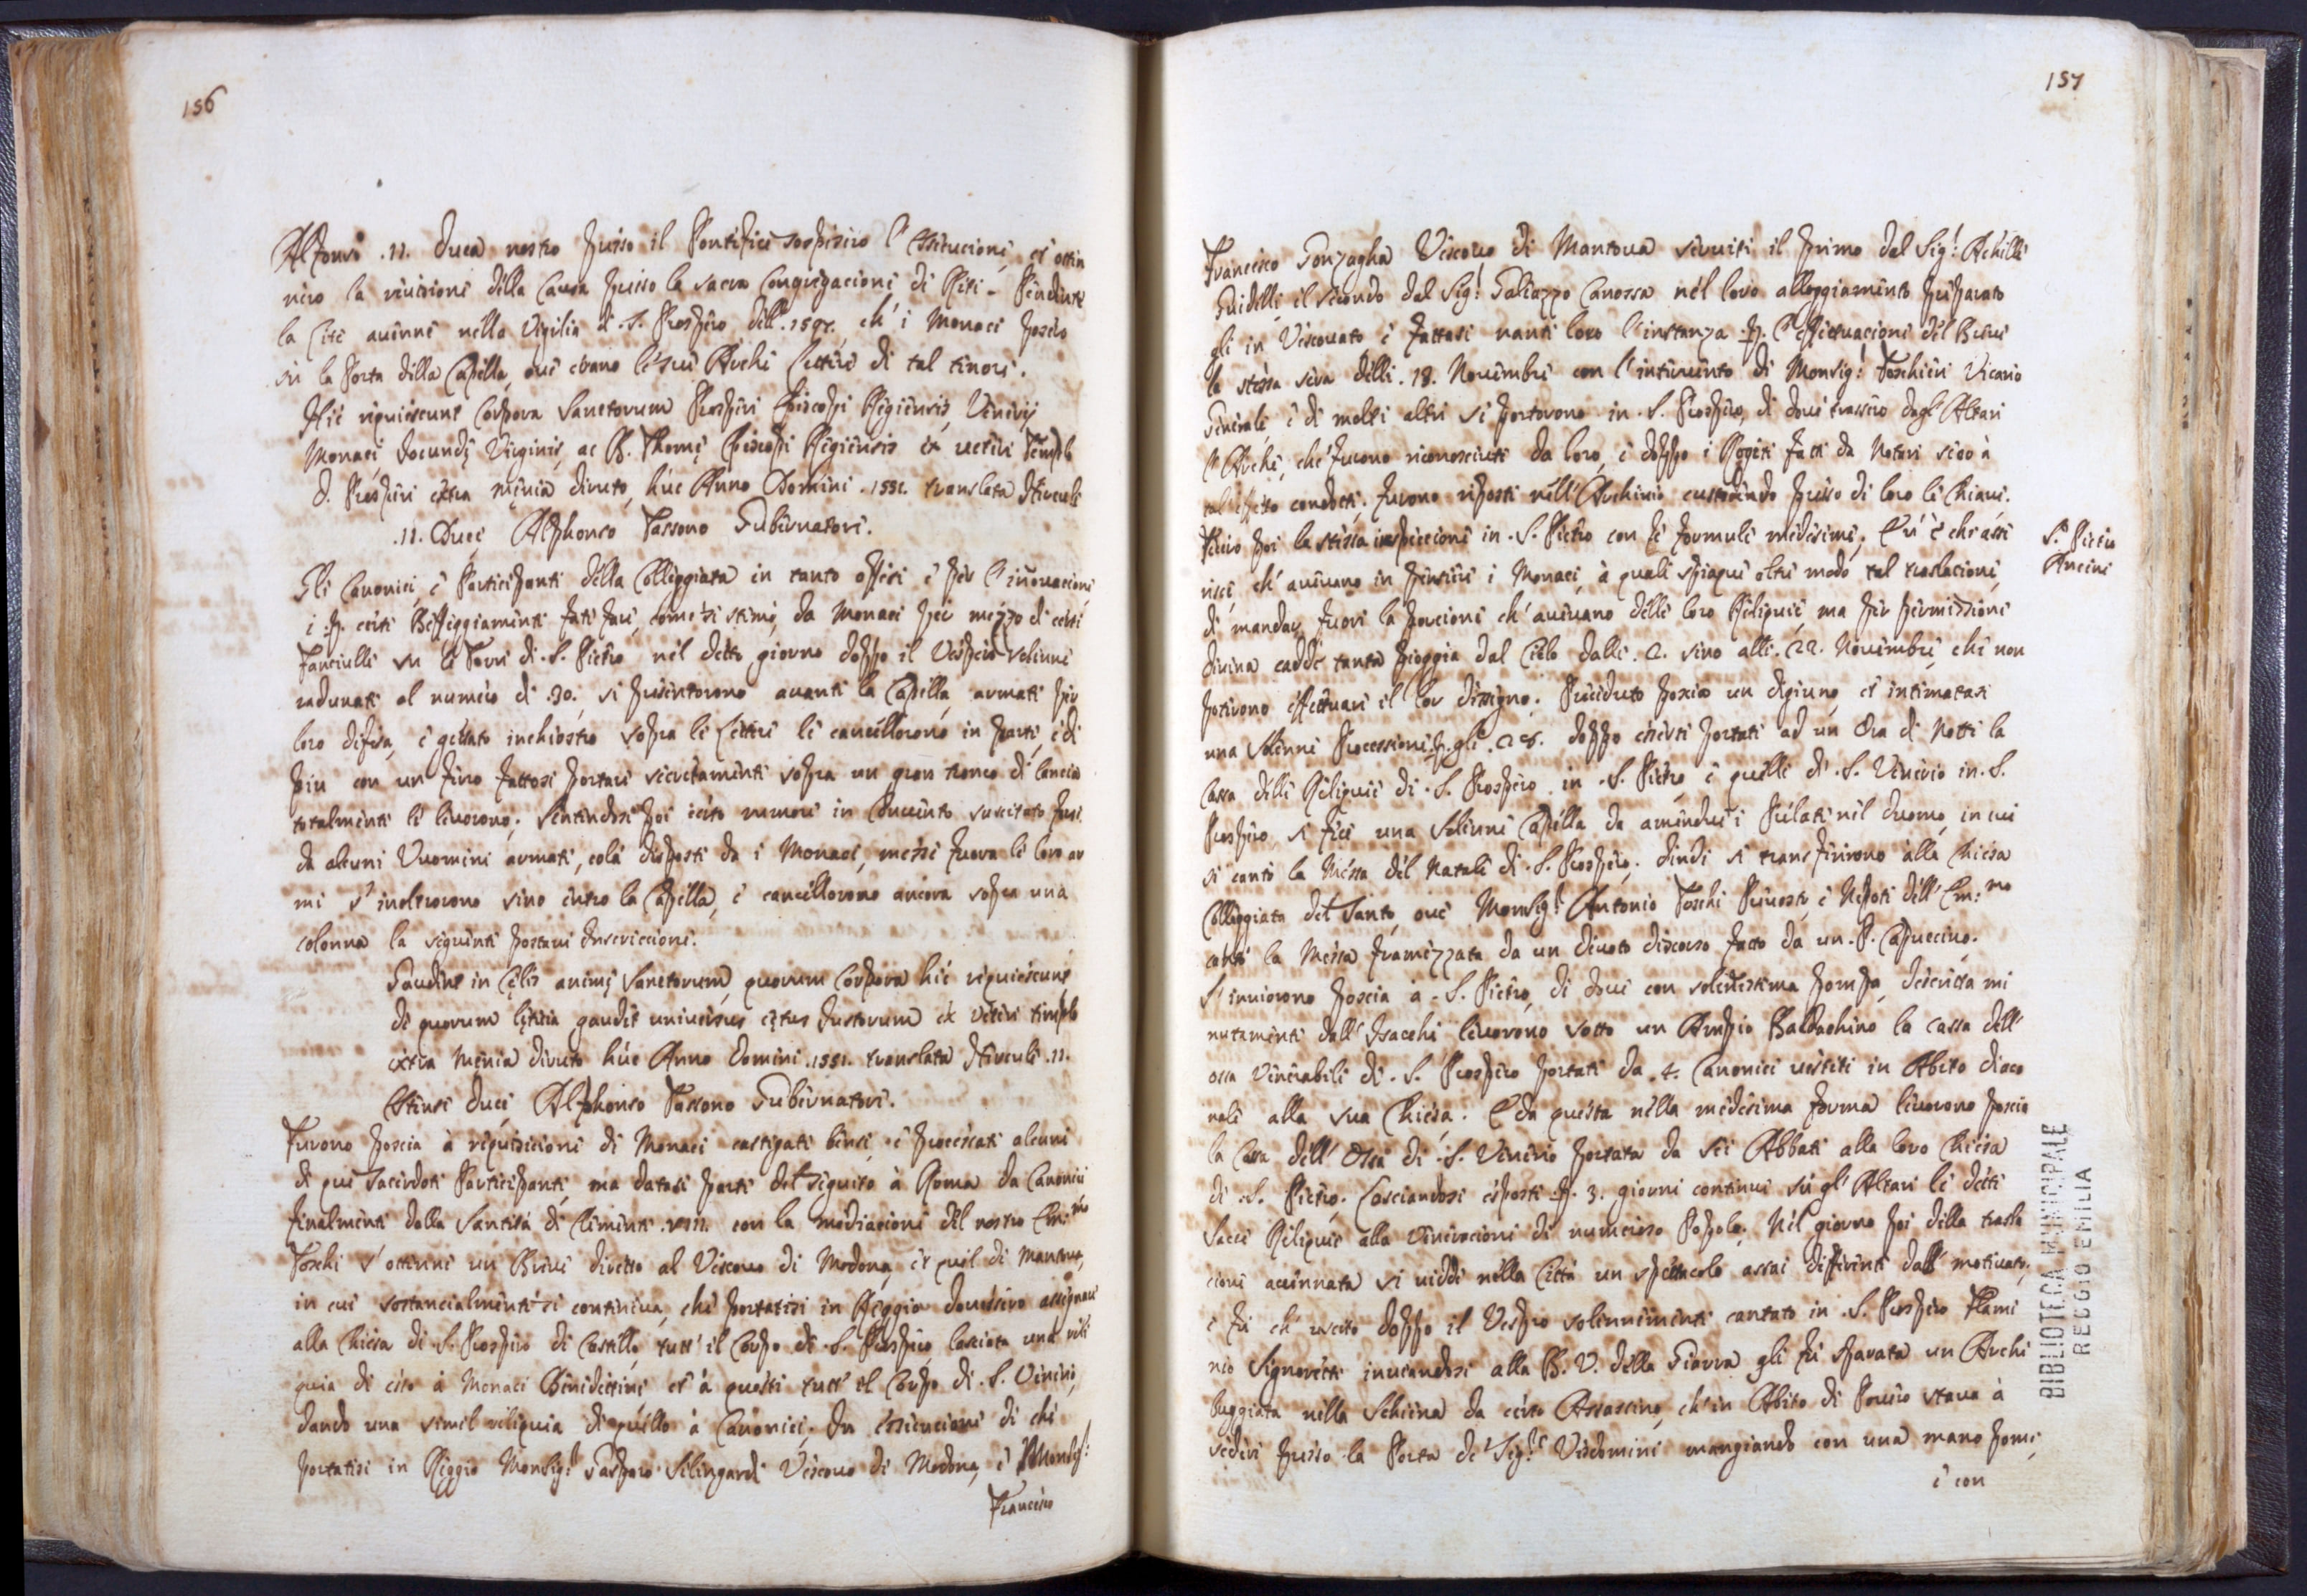 156
Alfonso .II. Duca nostro presso il Pontefice sospesero l'essecucione, et otten
nero la revisione della Causa presso la sacra Congregacione di Riti. Pendente
la Lite avenne nella Vigilia di .S. Prospero dell. 159 ch'i Monaci posero
su la Porta della Capella, ove erano le sue Arche lettere di tal tenore.
Hic requiescunt Corpora Sanctorum Prosperi Episcopi Regiensis, Venerij
Monaci Jocundę Virginis, ac B. Thomę Episcopi Regiensis ex veteri Templo
D. Prosperi extra męnia diruto, huc Anno Domini .1551. translata Herculi
.II. Duce, Alphonso Tassono Gubernatore.
Gli Canonici, e Participanti della Colleggiata in tanto offesi e per l'inovacione
e p. certi Beffeggiamenti fati fare, come si stimò, da Monaci per mezzo di certi
Fanciulli su le Torri di .S. Pietro nel detto giorno doppo il Vespero solenne
radunati al numero di .30. si presentorono avanti la Capella, armati per
loro difesa, e gettato inchiostro sopra le Lettere le cancellorono in parte, e di
piu con un ferro fattosi portare secretamente sopra un gran tronco di lancia
totalmente le levorono; sentendosi poi certo rumore in Convento suscitato fuori
da alcuni Vuomini armati, colà disposti da i Monaci, messe fuora le loro ar
mi s'inoltrorono sino entro la Capella, e cancellorono ancora sopra una
colonna la seguente postavi Inscriccione.
Gaudent in Cęlis animę Sanctorum, quorum Corpora hic requiescunt,
de quorum lętitia gaudet universus cętus Justorum ex veteri templo
extra Męnia diruto huc Anno Domini .1551. translata Herculi .II.
Estensi Duce Alphonso Tassono Gubernatore.
Furono poscia à requisicione di Monaci castigati bensi, e processati alcuni
di que Sacerdoti Participanti, ma datasi parte del seguito à Roma da Canonici
finalmente dalla Santità di Clemente .VIII. con la mediacione del nostro Em:mo
Toschi s'ottenne un Breve diretto al Vescovo di Modona, et quel di Mantova,
in cui sostancialmente si conteneva, che portatisi in Reggio dovessero assignare
alla Chiesa di .S. Prospero di Castello tutt'il Corpo di .S. Prospero, lasciata una reli
quia di esso à Monaci Benedettini et à questi tutt'il Corpo di .S. Venerio,
dando una simil reliquia di quello à Canonici. In essecucione di che
portatisi in Reggio Monsig.r Gasparo Silingardi Vescovo di Modona, e Monsig:
Francesco
157
Francesco Gonzagha Vescovo di Mantova servuiti il primo dal Sig.r Achille
Guidelli, il secondo dal Sig.r Galeazzo Canossa nel loro alloggiamento preparato
gli in Vescovato e fattasi nanti loro l'instanza p. l'effettuacione del Breve
la stessa sera delli .18. Novembre con l'intervento di Monsig.r Foschieri Vicario
Generale, e di molti altri si portorono in .S. Prospero, di dove trassero dagl'Altari
l'Arche, che furono riconosciute da loro, e doppo i Rogiti fatti da Notari seco à
tal effetto condotti, furono riposti nell'Archivio custodendo presso di loro le Chiavi.
Fecero poi la stessa inspeccione in .S. Pietro con le formule medesime. E v'è chi asse
risce, ch'avevano in pensiere i Monaci, à quali spiaque oltre modo tal traslacione,
di mandar fuori la porcione ch'avevano delle loro Reliquie, ma per permissione
divina cadde tanta pioggia dal Cielo dalli . sino alli .22. Novembre, che non
poterono effettuare il lor dissegno. Preceduto poscia un digiuno, et intimatasi
una solenne Processione p. gli . doppo essersi portati ad un Ora di Notte la
Cassa delle Reliquie di .S. Prospero in .S. Pietro, e quelle di .S. Venerio in .S.
Prospero, si fece una solenne Capella da amendue i Prelati nel Duomo, in cui
si cantò la Messa del Natale di .S. Prospero; Indi si transferirono alla Chiesa
Colleggiata del Santo, ove Monsig.r Antonio Toschi Prevosto, e Nepote dell'Em:mo
cantò la Messa framezzata da un divoto discorso fatto da un .P. Capuccino.
S'inviorono poscia à .S. Pietro, di dove con solenissima pompa, descritta mi
nutamente dall'Isacchi levorono sotto un Ampio Baldachino la Cassa dell'
ossa Venerabili di .S. Prospero portate da .4. Canonici vestiti in Abito diaco
nale alla sua Chiesa. E da questa nella medesima forma levorono poscia
la Cassa dell'Ossa di .S. Venerio portata da sei Abbati alla loro Chiesa
di .S. Pietro. Lasciandosi esposte p. 3. giorni continui su gl'Altari le dette
Sacre Reliquie alla Veneracione di numeroso Popolo. Nel giorno poi della trasla
cione accennata si vidde nella Città un spettacolo assai differente dall'motivato,
e fu ch'uscito doppo il Vespro solennemente cantato in .S. Prospero Flami
nio Signoretti inviandosi alla B.V. della Giarra gli fu sparata un Archi
buggiata nella Schiena da certo Assassino, ch'in Abito di Povero stava à
sedere presso la Porta de Sig.ri Visdomini mangiando con una mano pome,
e con
S. Pietro
Ancini
BIBLIOTECA MUNICIPALE
REGGIO EMILIA